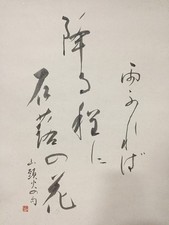 雨ふれば
降る程に
石蕗の花
山頭火の句